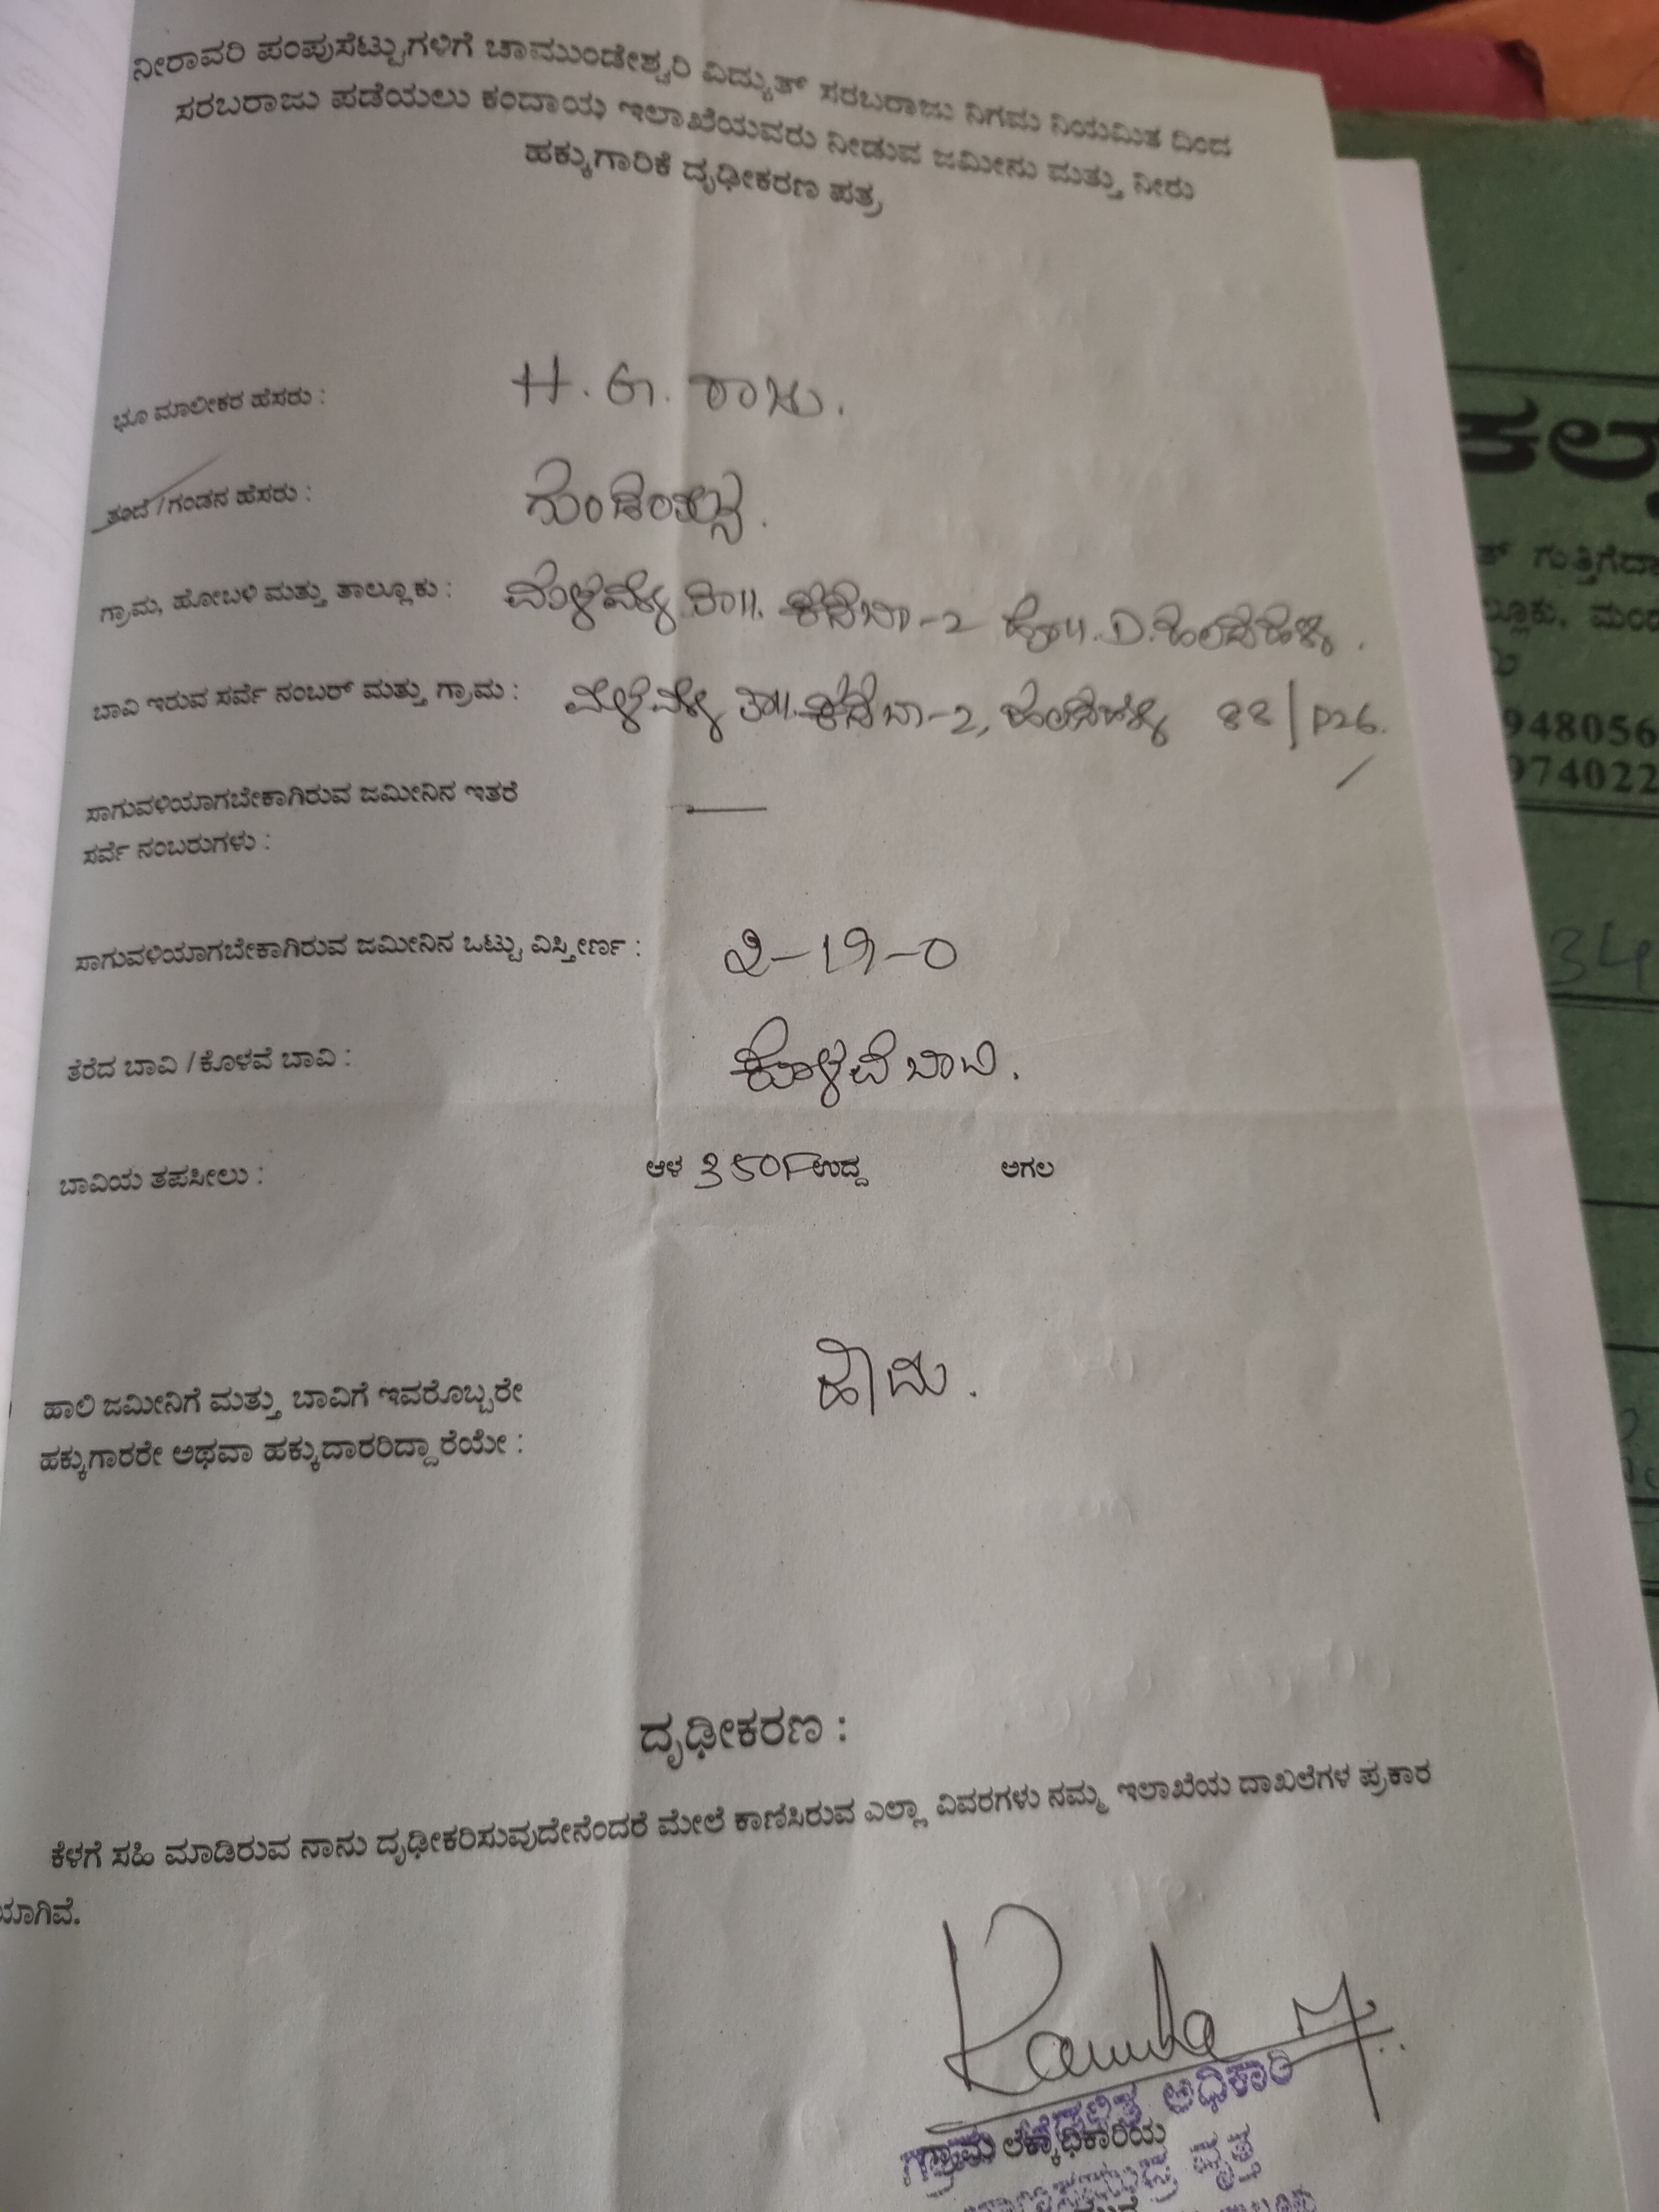 ನೀರಾವರಿ ಪಂಪುಸೆಟ್ಟುಗಳಿಗೆ ಚಾಮುಂಡೇಶ್ವರಿ ವಿದ್ಯುತ್ ಸರಬರಾಜು ನಿಗಮ ನಿಯಮಿತ ದಿಂದ
ಸರಬರಾಜು ಪಡೆಯಲು ಕಂದಾಯ ಇಲಾಖೆಯವರು ನೀಡುವ ಜಮೀನು ಮತ್ತು ನೀರು
ಹಕ್ಕುಗಾರಿಕೆ ದೃಢೀಕರಣ ಪತ್ರ
ಭೂ ಮಾಲೀಕರ ಹೆಸರು : H. G. ರಾಜು.
ತಂದೆ /ಗಂಡನ ಹೆಸರು :
ಗ್ರಾಮ, ಹೋಬಳಿ ಮತ್ತು ತಾಲ್ಲೂಕು : ತಾ||. ಕಸಬಾ-2 ಹೋ||. D. ಹಲಸಹಳ್ಳಿ.
ಬಾವಿ ಇರುವ ಸರ್ವೆ ನಂಬರ್ ಮತ್ತು ಗ್ರಾಮ : ತಾ||. ಕಸಬಾ-2, ಹಲಸಹಳ್ಳಿ 88/P26.
ಸಾಗುವಳಿಯಾಗಬೇಕಾಗಿರುವ ಜಮೀನಿನ ಇತರೆ —
ಸರ್ವೆ ನಂಬರುಗಳು :
ಸಾಗುವಳಿಯಾಗಬೇಕಾಗಿರುವ ಜಮೀನಿನ ಒಟ್ಟು ವಿಸ್ತೀರ್ಣ : 2-19-0
ತೆರೆದ ಬಾವಿ /ಕೊಳವೆ ಬಾವಿ : ಕೊಳವೆ ಬಾವಿ.
ಬಾವಿಯ ತಪಸೀಲು : ಆಳ 350F ಉದ್ದ ಅಗಲ
ಹಾಲಿ ಜಮೀನಿಗೆ ಮತ್ತು ಬಾವಿಗೆ ಇವರೊಬ್ಬರೇ ಹೌದು.
ಹಕ್ಕುಗಾರರೇ ಅಥವಾ ಹಕ್ಕುದಾರರಿದ್ದಾರೆಯೇ :
ದೃಢೀಕರಣ :
ಕೆಳಗೆ ಸಹಿ ಮಾಡಿರುವ ನಾನು ದೃಢೀಕರಿಸುವುದೇನೆಂದರೆ ಮೇಲೆ ಕಾಣಿಸಿರುವ ಎಲ್ಲಾ ವಿವರಗಳು ನಮ್ಮ ಇಲಾಖೆಯ ದಾಖಲೆಗಳ ಪ್ರಕಾರ
ಯಾಗಿವೆ.
ಗ್ರಾಮ ಲೆಕ್ಕಾಧಿಕಾರಿಯ
ಗ್ರಾಮ ಆಡಳಿತ ಅಧಿಕಾರಿ
ವೃತ್ತ
ಕಲ್
ಗುತ್ತಿಗೆದಾ
ಲ್ಲೂಕು, ಮಂಡ
948056
974022
34